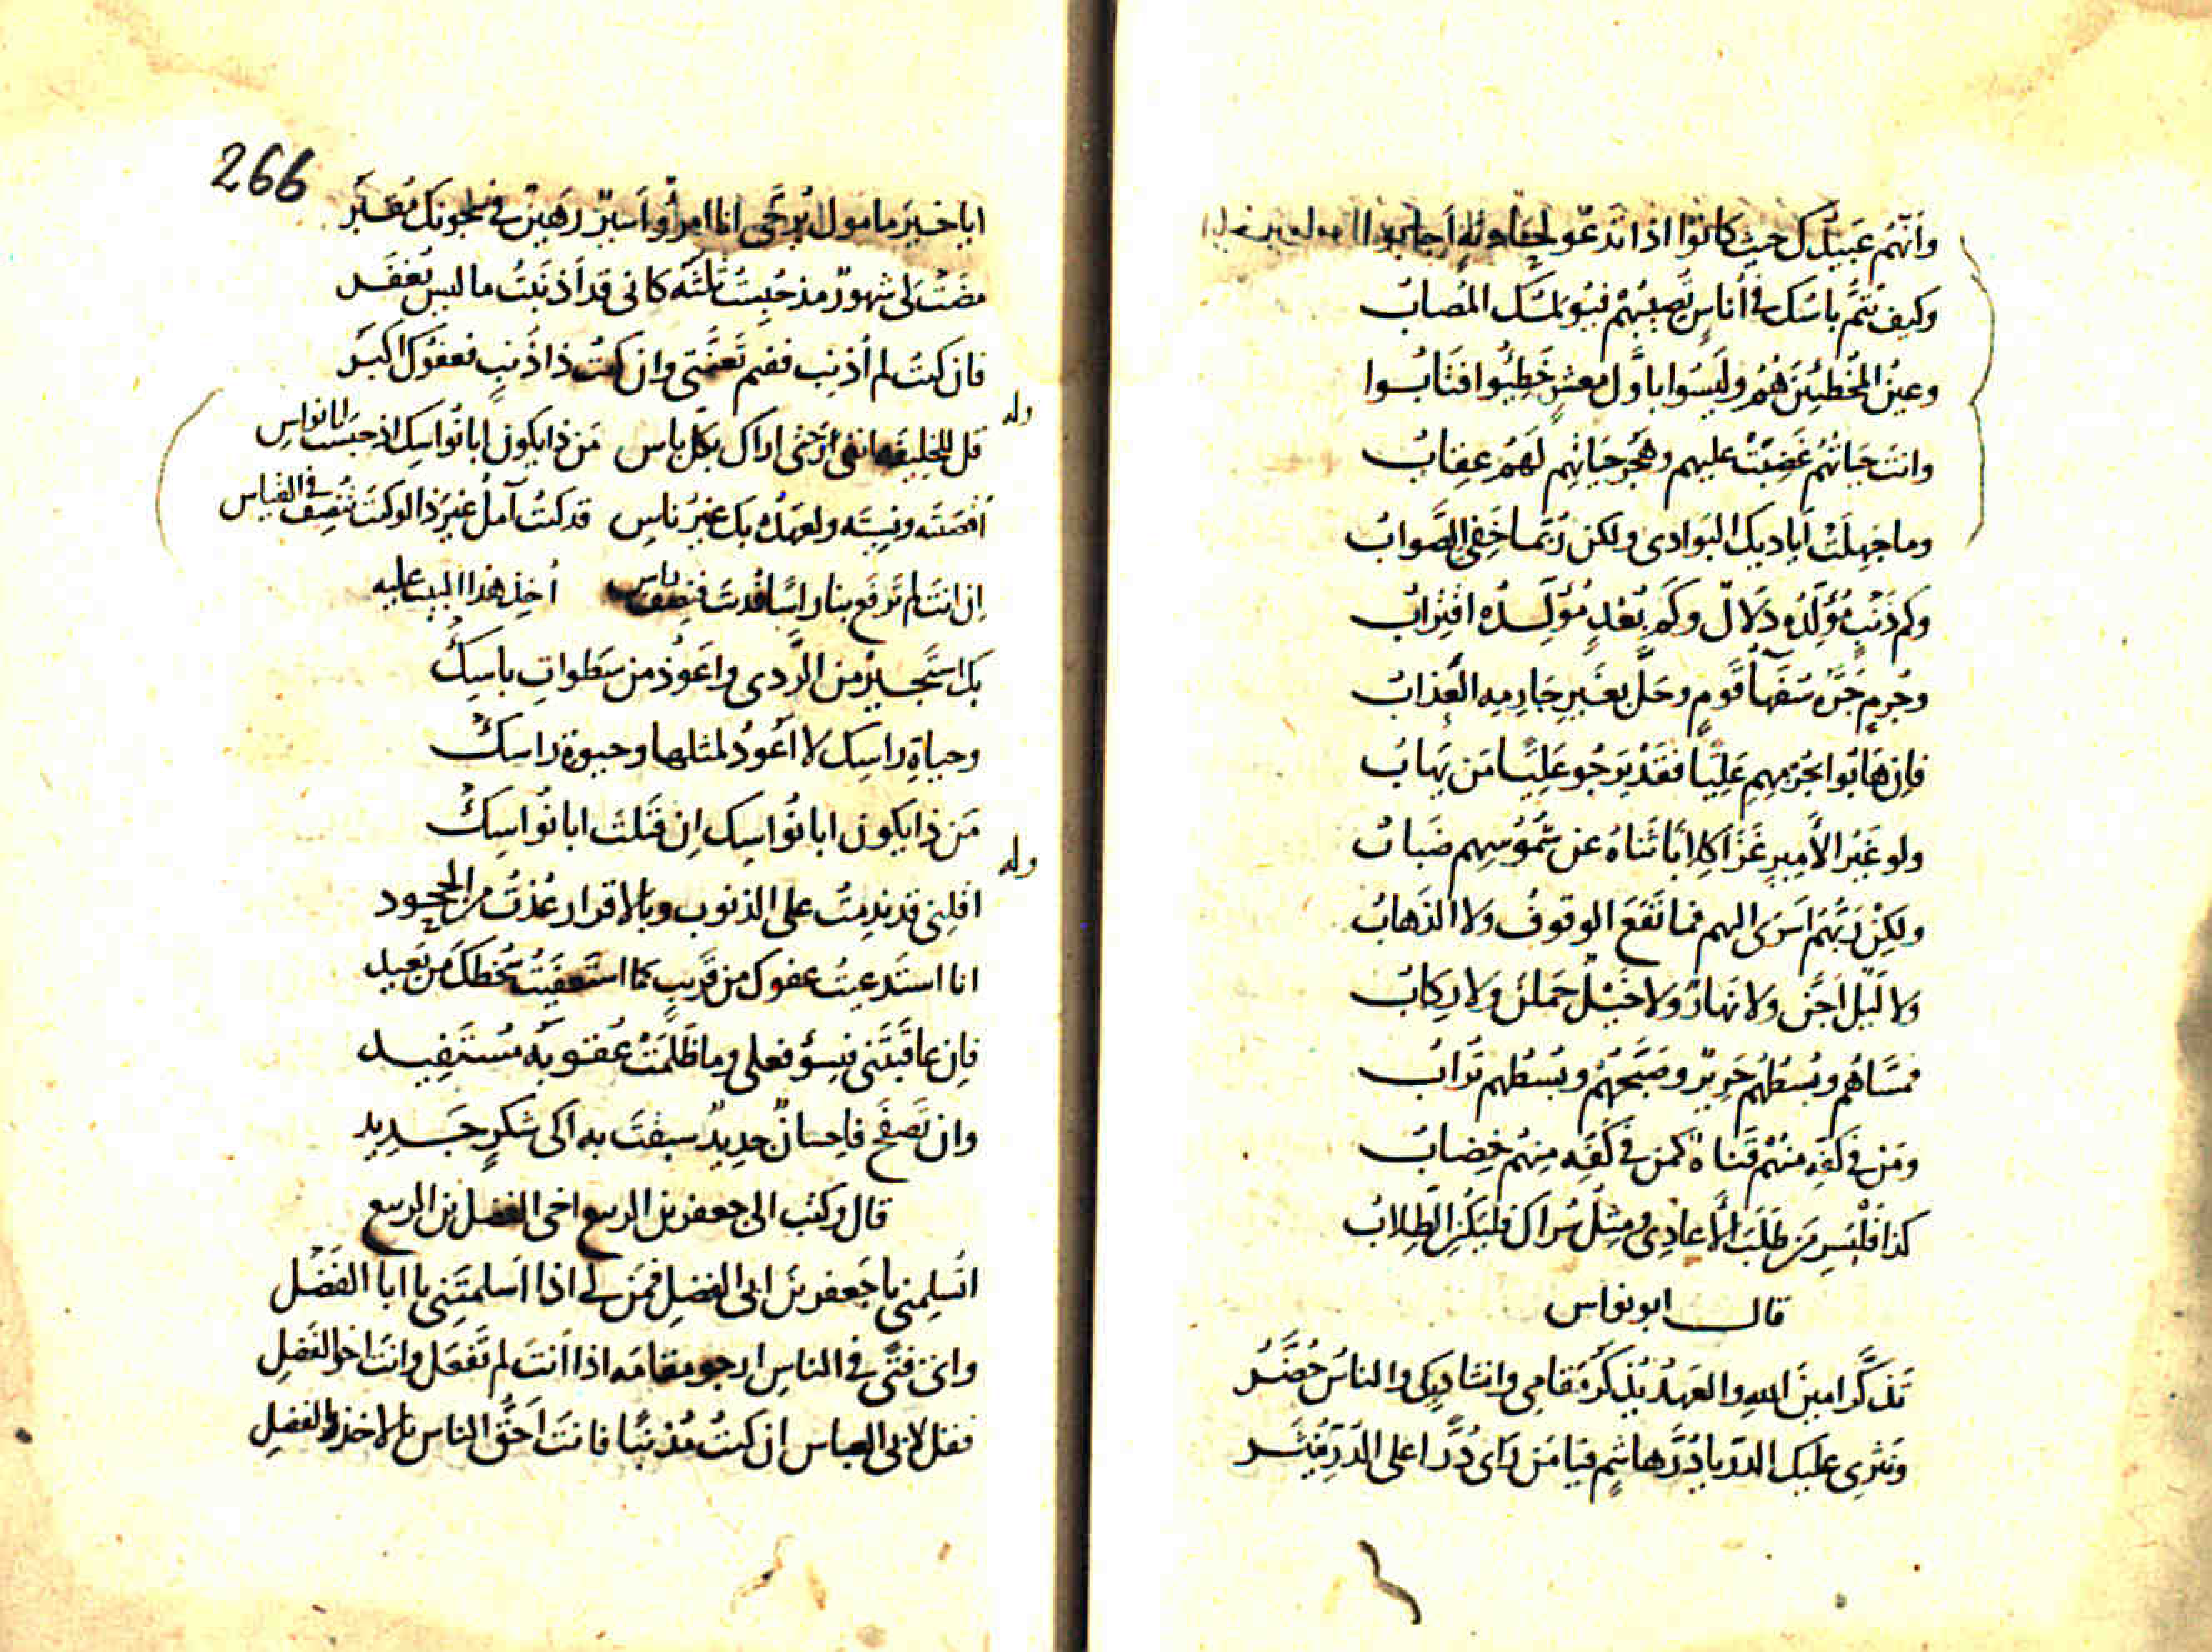 وأنهم عبيدك حيث كانوا اذا تدعو لحادثة أجابوا
وكيف يتم باسك في أناس تصيبهم فيؤلمك المصاب
وعين المخطئين هم وليسوا باول معشر خطئوا فتابوا
وانت حياتهم غضبت عليهم وهجر حياتهم لهم عقاب
وما جهلت أياديك البوادي ولكن ربما خفي الصواب
وكم ذنب مولده دلال وكم بعد مولده اقتراب
وجرم جره سفهاء قوم وحل بغير جارمه العذاب
فإن هابوا بجرمهم عليا فقد يرجو عليا من يهاب
ولو غير الأمير غزا كلابا ثناه عن شموسهم ضباب
ولكن ربهم أسرى اليهم فما نفع الوقوف ولا الذهاب
ولا ليل أجن ولا نهار ولا خيل حملن ولا ركاب
فمساهم وبسطهم حرير وصبحهم وبسطهم تراب
ومن في كفه منهم قناة كمن في كفه منهم خضاب
كذا فليسر من طلب الأعادي ومثل سراك فليكن الطلاب
قال ابو نواس
تذكر امين الله والعهد يذكر مقامي وانشاديك والناس حضر
ونثري عليك الدر يا در هاشم فيا من رأى درا على الدر ينثر
266
ايا خير مامول يرجى انا امرؤ اسير رهين في سجونك مقبر
مضت لي شهور مذ حبست ثلثة كاني قد أذنبت ما ليس يغفر
فان كنت لم أذنب ففيم تعنتي وان كنت ذا ذنب فعفوك اكبر
وله
قل للخليفة انني أرجى اراك بكل باس من ذا يكون ابا نواسك اذ حبست ابا نواس
أقصيته ونسيته ولعهده بك غير ناس قد كنت آمل غير ذا لو كنت تنصف في القياس
إن انت لم ترفع بنا راسا فديت فنصف راس أخذ هذا البيت عليه
بك استجير من الردى واعوذ من سطوات باسك
وحياة راسك لا أعود لمثلها وحيوة راسك
من ذا يكون ابا نواسك إن قتلت ابا نواسك
وله
اقلني قد ندمت على الذنوب وبالاقرار عذت من الجحود
انا استدعيت عفوك من قريب كما استعفيت سخطك من بعيد
فإن عاقبتني فبسوء فعلي وما ظلمت عقوبة مستقيد
وان تصفح فاحسان جديد سبقت به الى شكر جديد
قال وكتب الى جعفر بن الربيع اخي الفضل بن الربيع
اتسلمني يا جعفر بن ابي الفضل فمن لي اذا اسلمتني يا ابا الفضل
واي فتى في الناس ارجو مقامه اذا انت لم تفعل وانت اخو الفضل
فقل لابي العباس ان كنت مذنبا فانت احق الناس بالاخذ بالفضل